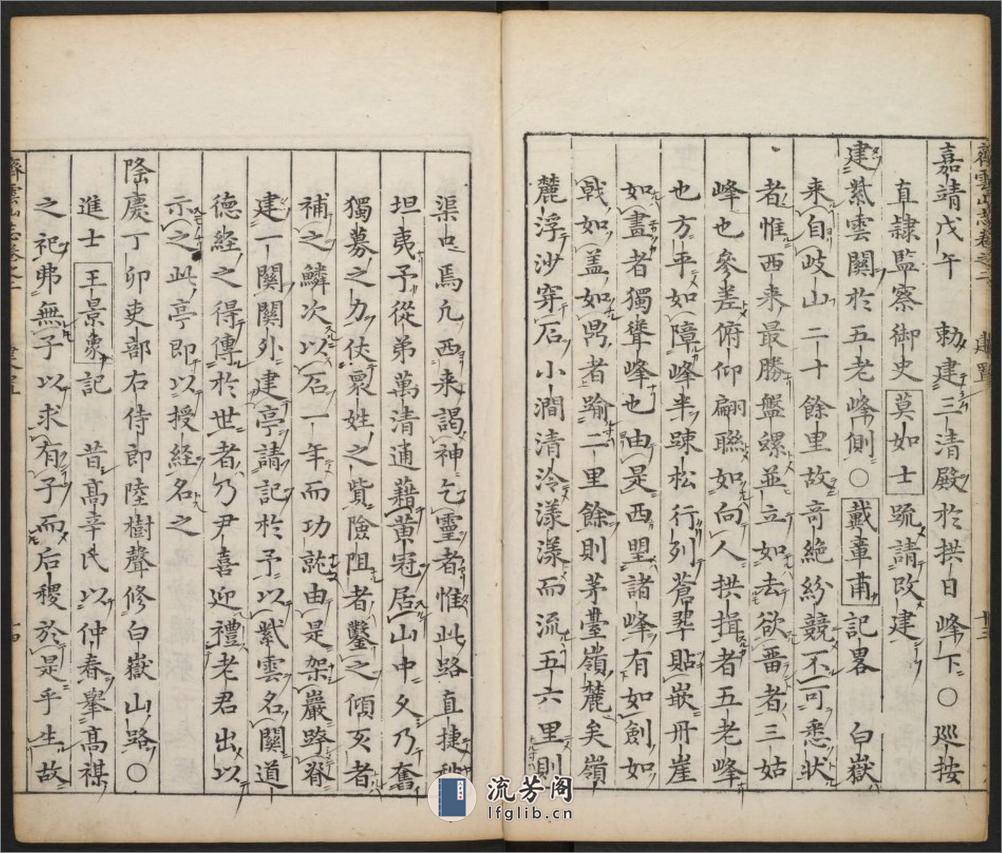 齊雲山志卷之二 建置 十三
嘉靖戊午 勅建三清殿於拱日峰下〇巡按
直隷監察御史莫如士䟽請改建
建紫雲關於五老峰側〇戴章甫記畧 白嶽
来自岐山二十餘里故竒絶紛競不可悉狀
者惟西来最勝盤螺並立如去欲畱者三姑
峰也參差俯仰翩聯如向人拱揖者五老峰
也方平如障峰半踈松行列蒼翠貼嵌丹崖
如畫者獨聳峰也由是西朢諸峰有如劍如
戟如盖如㒵者踰二里餘則茅臺嶺麓矣嶺
麓浮沙穿石小澗清泠漾漾而流五六里則
渠口焉凢西来謁神乞靈者惟此路直捷
坦夷予從弟萬清通藉黄冠居山中乆乃奮
獨募之力仗衆姓之貲險阻者鑿之傾仄者
補之鱗次以石一年而功就由是架巖跨脊
建一關關外建亭請記於予以紫雲名關道
德經之得傳於世者乃尹喜迎禮老君出以
示之此亭即以授経名之
隆慶丁卯吏部右侍郎陸樹聲修白嶽山路〇
進士王景象記 昔髙辛氏以仲春舉髙禖
之祀弗無子以求有子而后稷於是乎生故
齊雲山志卷之二 十四
流芳阁
lfglib.cn